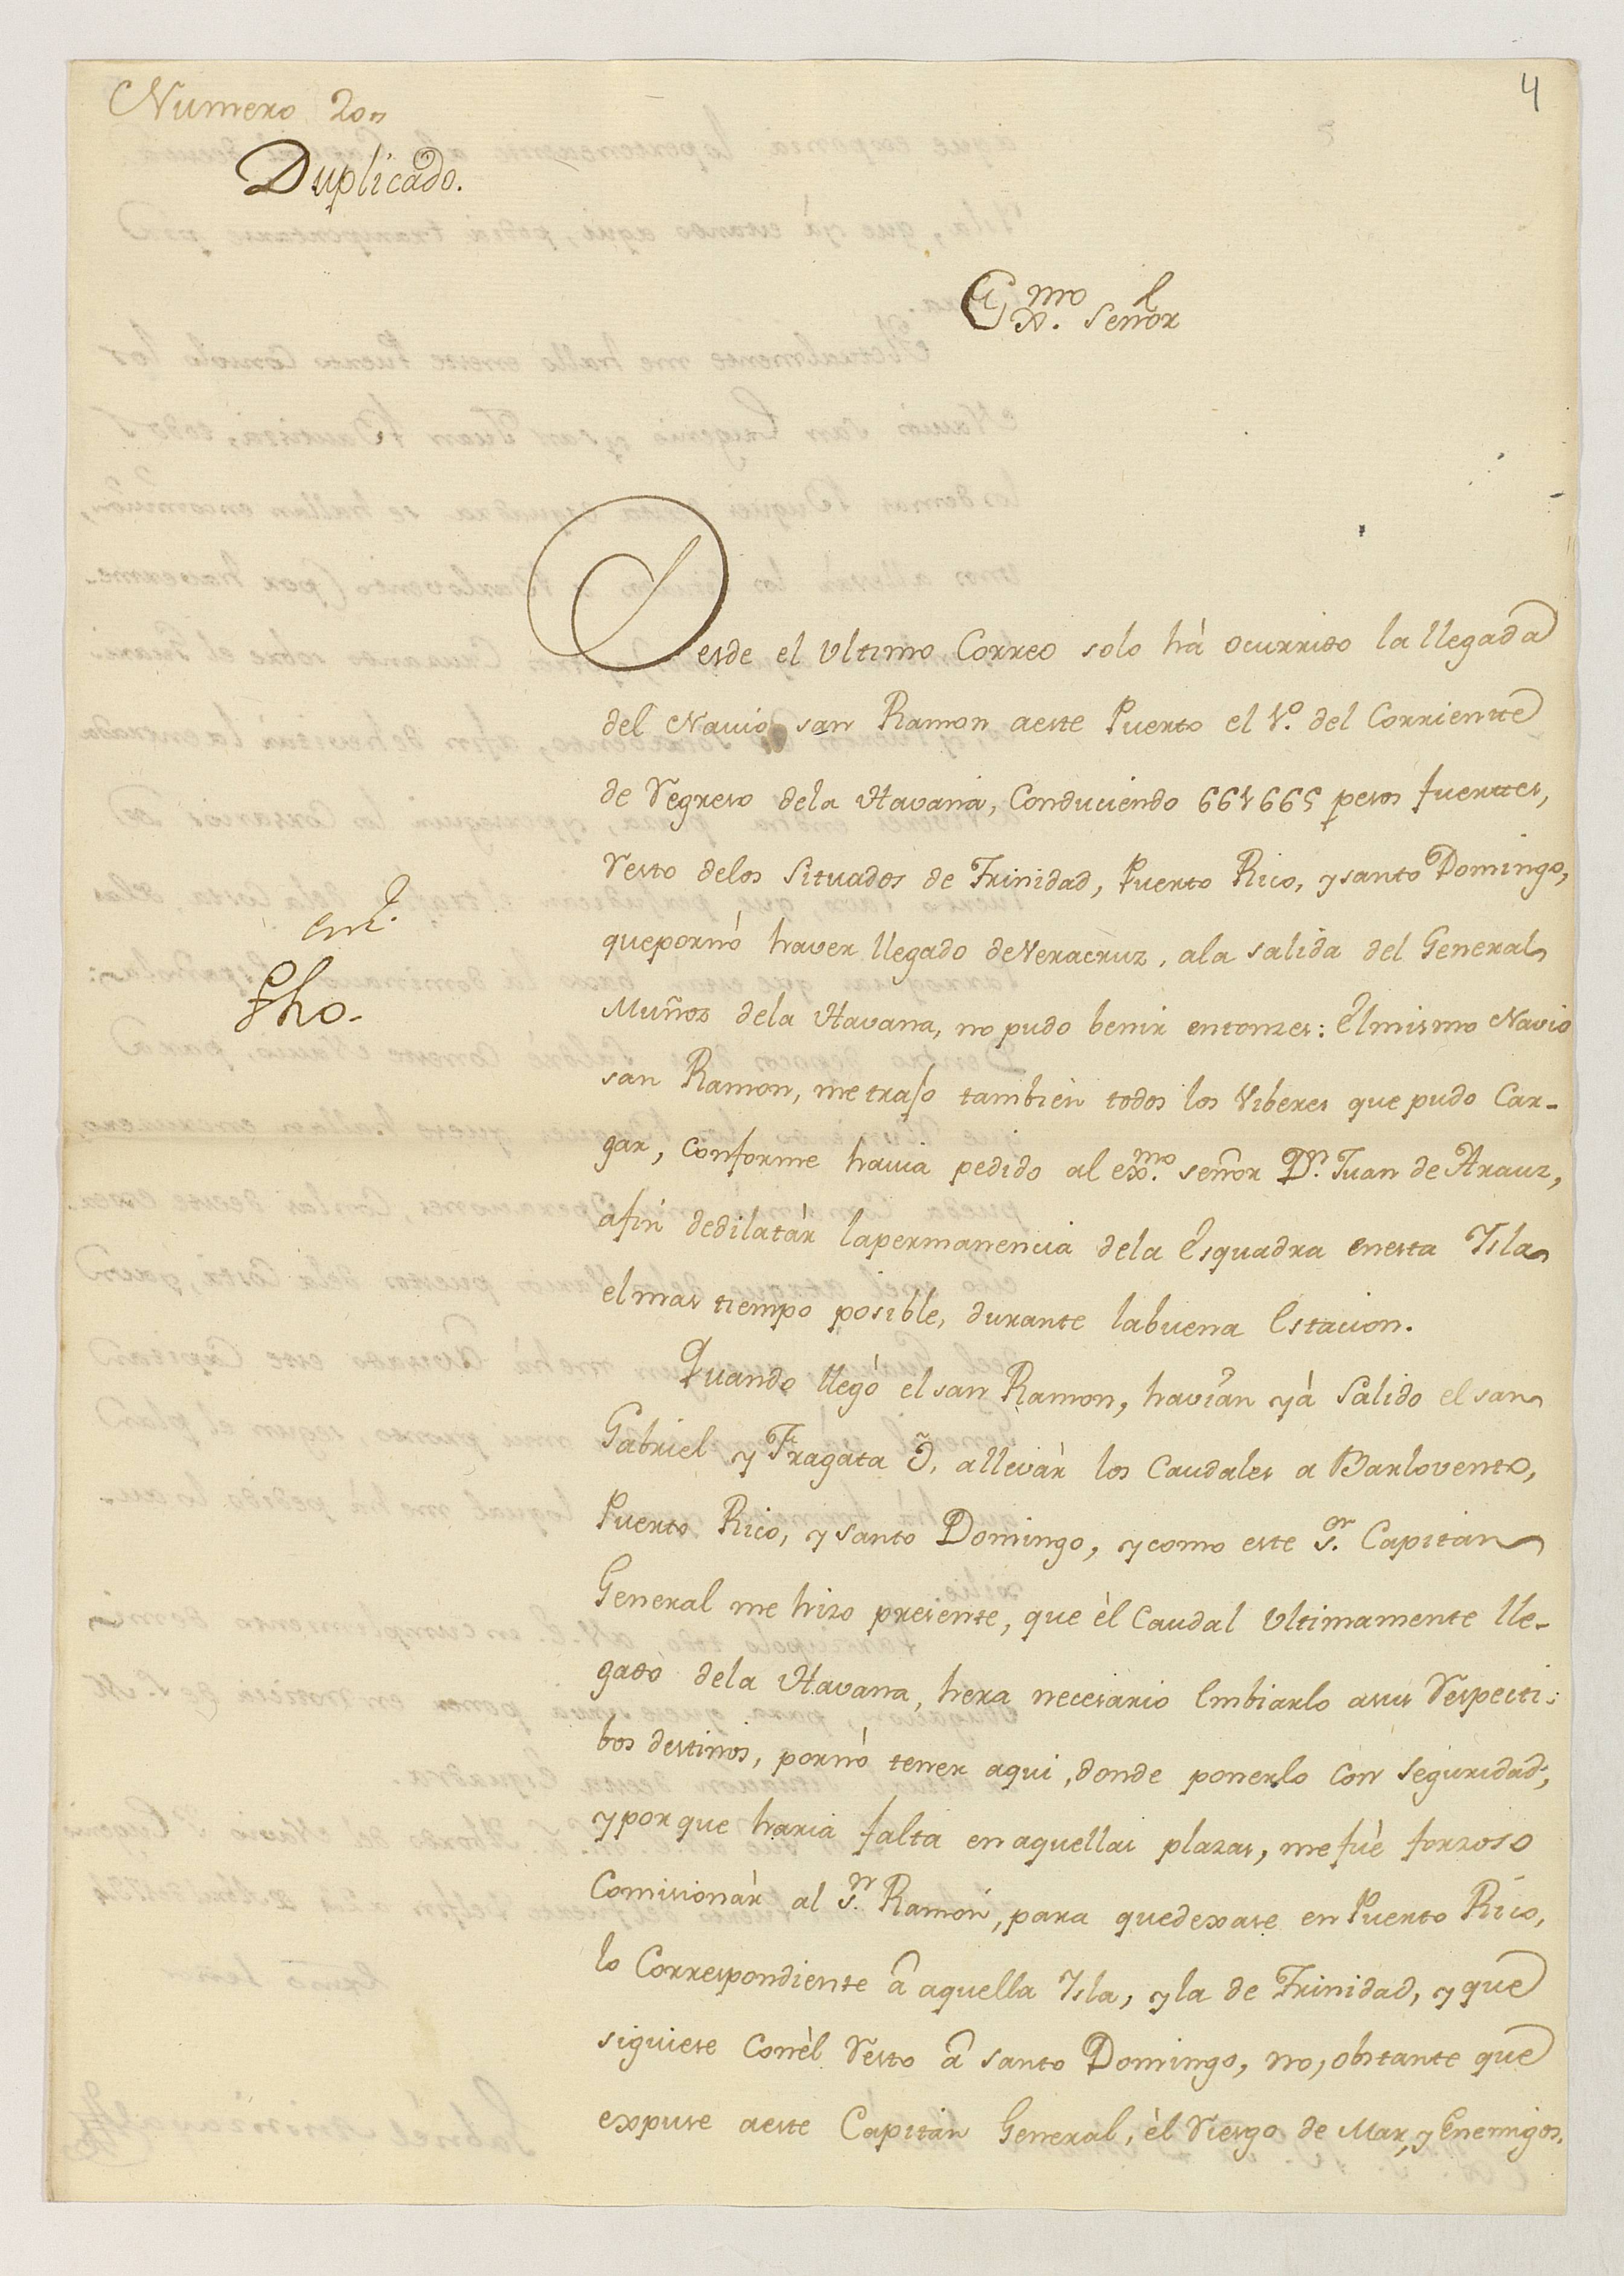 4
Numero 20,,
Duplicado.
Exmo. Señor
Desde el ultimo Correo solo hà ocurrido la llegada
del Navio san Ramon aeste Puerto el 1º. del Corriente
de regreso dela Havana, Conduciendo pesos fuertes,
resto delos Situados de Trinidad, Puerto Rico, y santo Domingo,
quepornó haver llegado deVeracruz, ala salida del General
Muñoz dela Havana, no pudo benir entonzes: Elmismo Navio
san Ramon, metrajo tambien todos los Viberes que pudo Car-
gar, conforme havia pedido al exmo. señor Dn. Juan de Arauz,
afin dedilatàr lapermanencia dela Esquadra enesta Ysla
elmas tiempo posible, durante labuena Estacion.
Quando llegò elsan Ramon, havian yà salido el san
Gabriel y Fragata O, allevàr los Caudales a Barlovento,
Puerto Rico, y santo Domingo, ycomo este sor. Capitan
General me hizo presente, que èl Caudal ultimamente lle-
gado dela Havana, hera necesario Embiarlo asus respecti-
bos destinos, pornó tener aqui, donde ponerlo con seguridad,
yporque haria falta en aquellas plazas, mefuè forzoso
Comisionàr al Sn. Ramón, para quedexase en Puerto Rico,
lo Correspondiente a aquella Ysla, yla de Trinidad, y que
siguiese Conèl resto a santo Domingo, no, obstante que
expuse aeste Capitan General, èl riesgo de Mar, y Enemigos.
Fho.